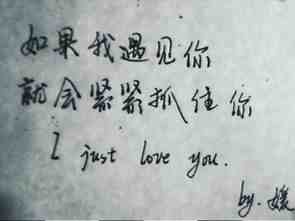 如果我遇见你
就会紧紧抓住你
I just love you.
by. 媛